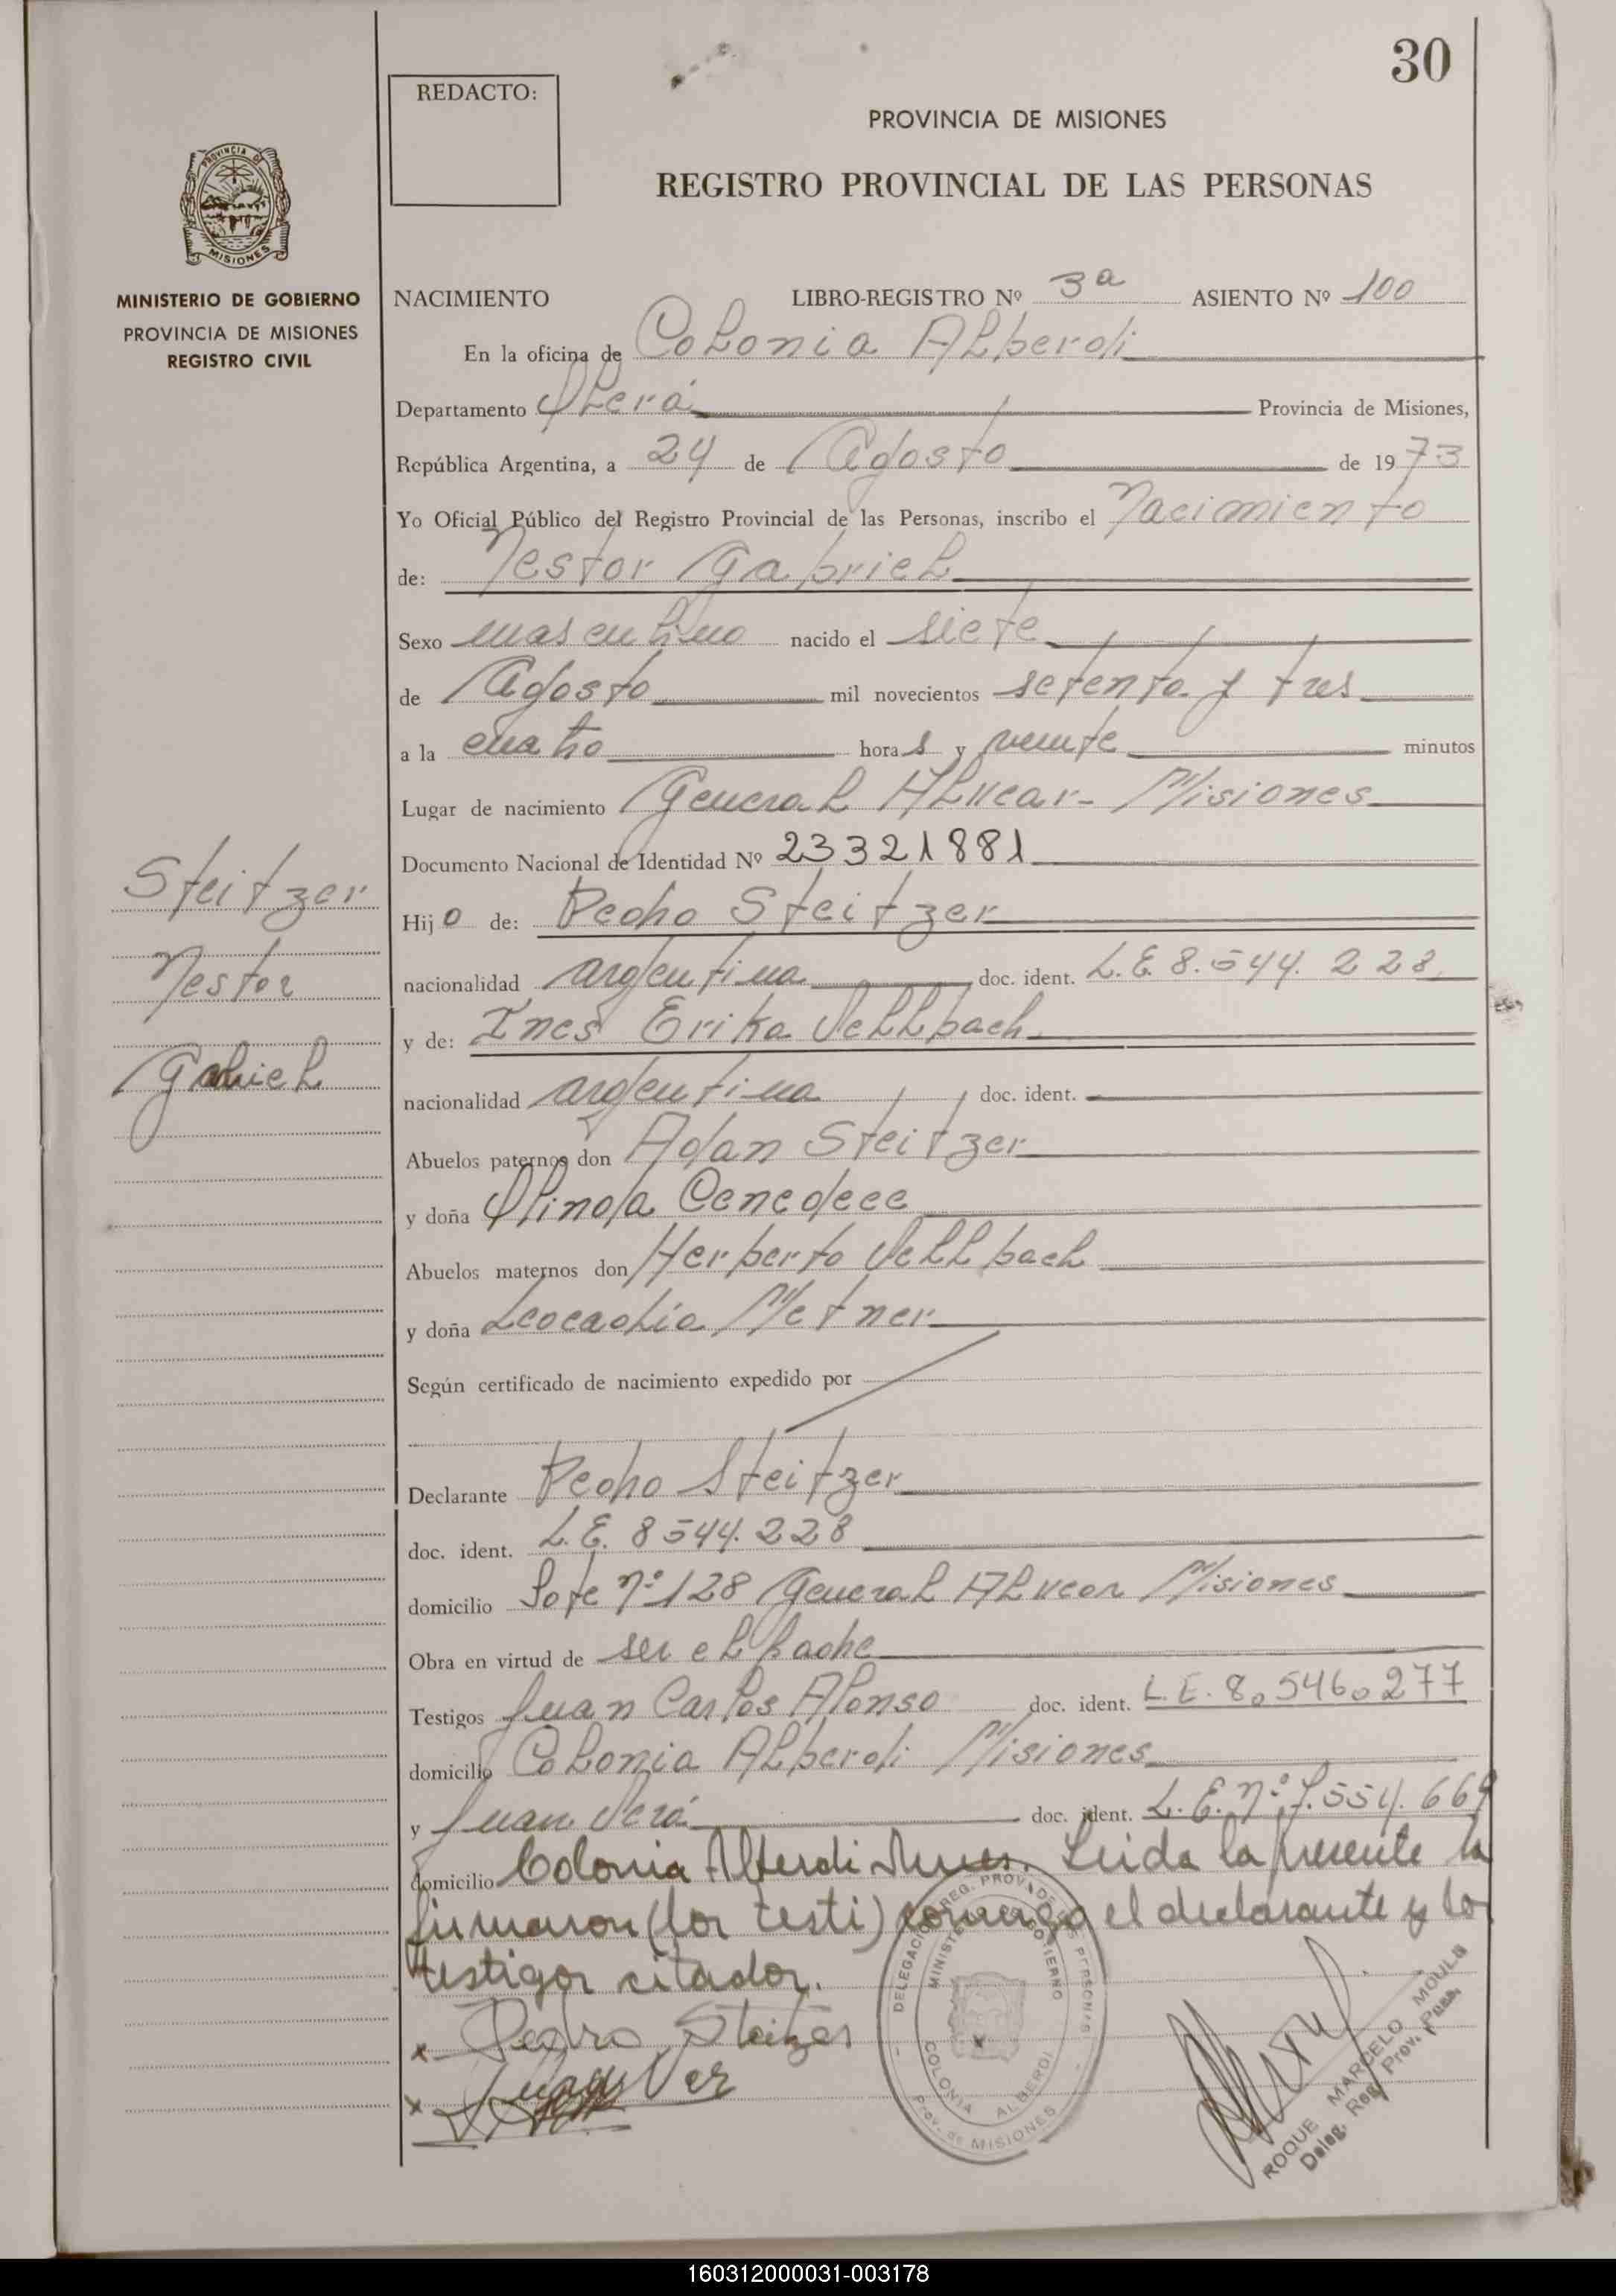 30
REDACTO:
PROVINCIA DE MISIONES
REGISTRO PROVINCIAL DE LAS PERSONAS
PROVINCIA DE
MISIONES
MINISTERIO DE GOBIERNO
PROVINCIA DE MISIONES
REGISTRO CIVIL
NACIMIENTO LIBRO-REGISTRO Nº 3a ASIENTO Nº 100
En la oficina de Colonia Alberdi
Departamento Oberá Provincia de Misiones,
República Argentina, a 24 de Agosto de 1973
Yo Oficial Público del Registro Provincial de las Personas, inscribo el Nacimiento
de: Nestor Gabriel
Sexo masculino nacido el siete
de Agosto mil novecientos setenta y tres
a la cuatro horas y veinte minutos
Lugar de nacimiento General Alvear - Misiones
Documento Nacional de Identidad Nº 23321881
Hijo de: Pedro Steitzer
nacionalidad argentina doc. ident. L.E. 8.544.228
y de: Ines Erika Vellbach
nacionalidad argentina doc. ident.
Abuelos paternos don Adan Steitzer
y doña Olinda
Abuelos maternos don Herberto Vellbach
y doña Leocadia Metner
Según certificado de nacimiento expedido por
Declarante Pedro Steitzer
doc. ident. L.E. 8544.228
domicilio Lote Nº 128 General Alvear Misiones
Obra en virtud de ser el padre
Testigos Juan Carlos Alonso doc. ident. L.E. 8.546.277
domicilio Colonia Alberdi Misiones
y Juan Verá doc. ident. L.E. Nº 7.554.669
domicilio Colonia Alberdi Mnes. Leida la presente la
firmaron (los testi) conmigo el declarante y los
testigos citados.
x Pedro Steitzer
x
Steitzer
Nestor
Gabriel
DELEGACION REG. PROV. DE LAS PERSONAS
MINISTERIO DE GOBIERNO
COLONIA ALBERDI
Prov. de MISIONES
ROQUE MARCELO MOULA
Deleg. Reg. Prov. Pers.
160312000031-003178